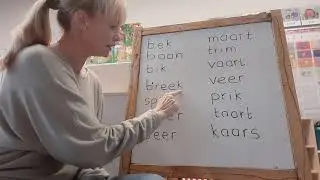 bek
baan
bik
breek
maart
trim
vaart
veer
prik
taart
kaars